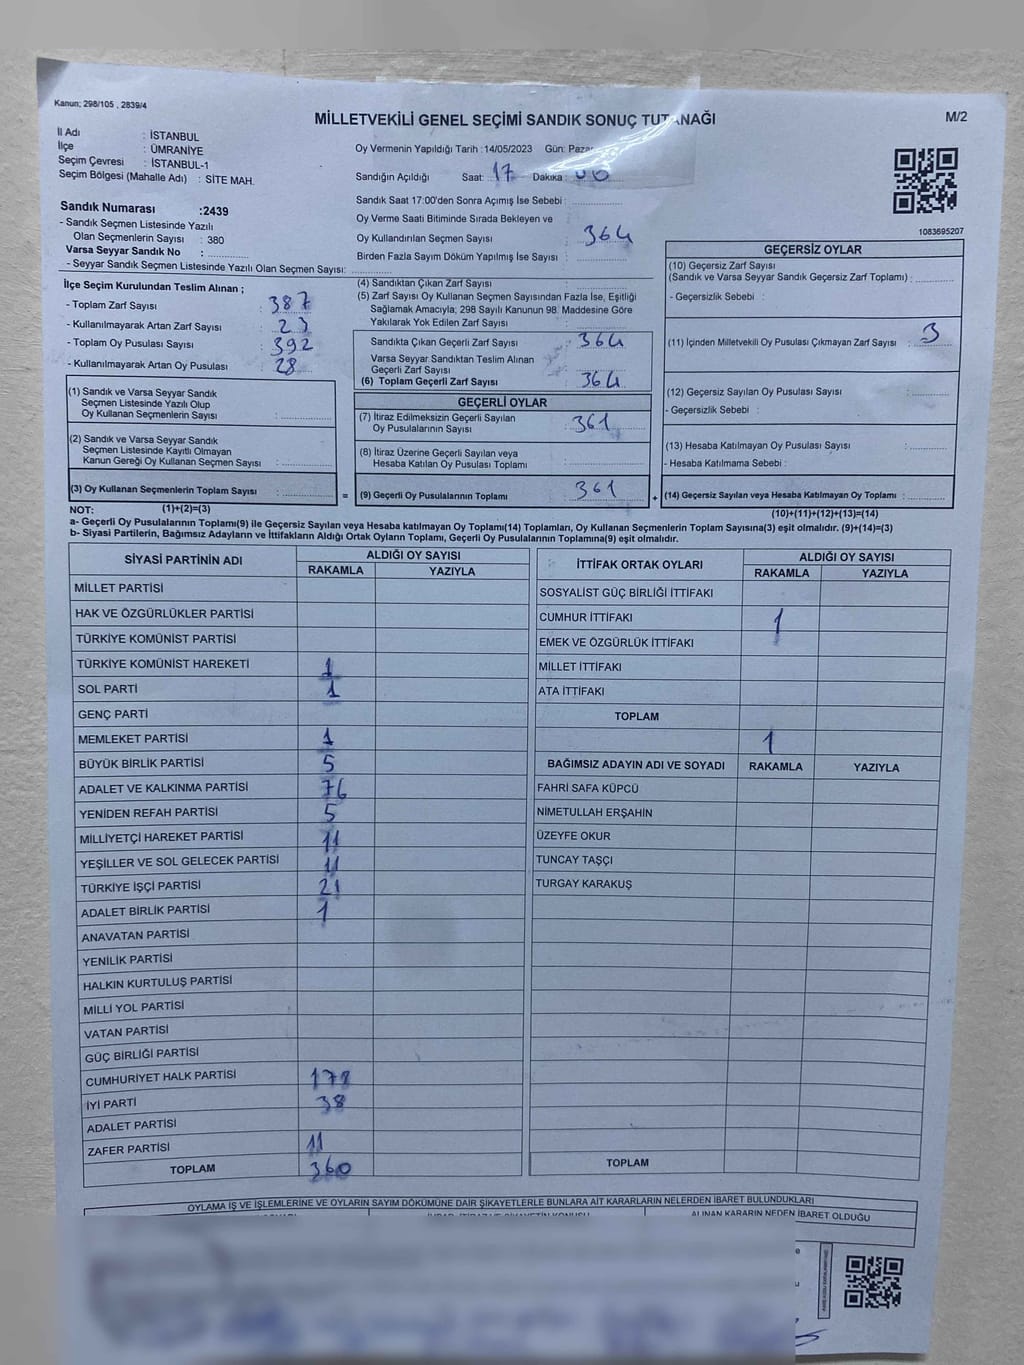 Kanun; 298/105 , 2839/4
MİLLETVEKİLİ GENEL SEÇİMİ SANDIK SONUÇ TUTANAĞI
M/2
İl Adı : İSTANBUL
İlçe : ÜMRANİYE
Seçim Çevresi : İSTANBUL-1
Seçim Bölgesi (Mahalle Adı) : SİTE MAH.
Oy Vermenin Yapıldığı Tarih :14/05/2023 Gün:
Sandığın Açıldığı Saat: 17 Dakika: 00
Sandık Saat 17:00'den Sonra Açımış İse Sebebi :
Oy Verme Saati Bitiminde Sırada Bekleyen ve
Oy Kullandırılan Seçmen Sayısı 364
Birden Fazla Sayım Döküm Yapılmış İse Sayısı :
1083695207
Sandık Numarası :2439
- Sandık Seçmen Listesinde Yazılı
Olan Seçmenlerin Sayısı : 380
Varsa Seyyar Sandık No :
- Seyyar Sandık Seçmen Listesinde Yazılı Olan Seçmen Sayısı:
İlçe Seçim Kurulundan Teslim Alınan ;
- Toplam Zarf Sayısı : 387
- Kullanılmayarak Artan Zarf Sayısı : 23
- Toplam Oy Pusulası Sayısı : 392
- Kullanılmayarak Artan Oy Pusulası : 28
(1) Sandık ve Varsa Seyyar Sandık
Seçmen Listesinde Yazılı Olup
Oy Kullanan Seçmenlerin Sayısı :
(2) Sandık ve Varsa Seyyar Sandık
Seçmen Listesinde Kayıtlı Olmayan
Kanun Gereği Oy Kullanan Seçmen Sayısı :
(3) Oy Kullanan Seçmenlerin Toplam Sayısı :
(4) Sandıktan Çıkan Zarf Sayısı :
(5) Zarf Sayısı Oy Kullanan Seçmen Sayısından Fazla İse, Eşitliği
Sağlamak Amacıyla; 298 Sayılı Kanunun 98. Maddesine Göre
Yakılarak Yok Edilen Zarf Sayısı :
Sandıkta Çıkan Geçerli Zarf Sayısı : 364
Varsa Seyyar Sandıktan Teslim Alınan
Geçerli Zarf Sayısı :
(6) Toplam Geçerli Zarf Sayısı : 364
GEÇERLİ OYLAR
(7) İtiraz Edilmeksizin Geçerli Sayılan
Oy Pusulalarının Sayısı : 361
(8) İtiraz Üzerine Geçerli Sayılan veya
Hesaba Katılan Oy Pusulası Toplamı :
= (9) Geçerli Oy Pusulalarının Toplamı : 361 +
GEÇERSİZ OYLAR
(10) Geçersiz Zarf Sayısı
(Sandık ve Varsa Seyyar Sandık Geçersiz Zarf Toplamı) :
- Geçersizlik Sebebi :
(11) İçinden Milletvekili Oy Pusulası Çıkmayan Zarf Sayısı : 3
(12) Geçersiz Sayılan Oy Pusulası Sayısı :
- Geçersizlik Sebebi :
(13) Hesaba Katılmayan Oy Pusulası Sayısı :
- Hesaba Katılmama Sebebi :
(14) Geçersiz Sayılan veya Hesaba Katılmayan Oy Toplamı :
NOT: (1)+(2)=(3)
(10)+(11)+(12)+(13)=(14)
a- Geçerli Oy Pusulalarının Toplamı(9) ile Geçersiz Sayılan veya Hesaba katılmayan Oy Toplamı(14) Toplamları, Oy Kullanan Seçmenlerin Toplam Sayısına(3) eşit olmalıdır. (9)+(14)=(3)
b- Siyasi Partilerin, Bağımsız Adayların ve İttifakların Aldığı Ortak Oyların Toplamı, Geçerli Oy Pusulalarının Toplamına(9) eşit olmalıdır.
SİYASİ PARTİNİN ADI ALDIĞI OY SAYISI
RAKAMLA YAZIYLA
MİLLET PARTİSİ
HAK VE ÖZGÜRLÜKLER PARTİSİ
TÜRKİYE KOMÜNİST PARTİSİ
TÜRKİYE KOMÜNİST HAREKETİ 1
SOL PARTİ 1
GENÇ PARTİ
MEMLEKET PARTİSİ 1
BÜYÜK BİRLİK PARTİSİ 5
ADALET VE KALKINMA PARTİSİ 76
YENİDEN REFAH PARTİSİ 5
MİLLİYETÇİ HAREKET PARTİSİ 11
YEŞİLLER VE SOL GELECEK PARTİSİ 11
TÜRKİYE İŞÇİ PARTİSİ 21
ADALET BİRLİK PARTİSİ 1
ANAVATAN PARTİSİ
YENİLİK PARTİSİ
HALKIN KURTULUŞ PARTİSİ
MİLLİ YOL PARTİSİ
VATAN PARTİSİ
GÜÇ BİRLİĞİ PARTİSİ
CUMHURİYET HALK PARTİSİ 178
İYİ PARTİ 38
ADALET PARTİSİ
ZAFER PARTİSİ 11
TOPLAM 360
İTTİFAK ORTAK OYLARI ALDIĞI OY SAYISI
RAKAMLA YAZIYLA
SOSYALİST GÜÇ BİRLİĞİ İTTİFAKI
CUMHUR İTTİFAKI 1
EMEK VE ÖZGÜRLÜK İTTİFAKI
MİLLET İTTİFAKI
ATA İTTİFAKI
TOPLAM
1
BAĞIMSIZ ADAYIN ADI VE SOYADI RAKAMLA YAZIYLA
FAHRİ SAFA KÜPCÜ
NİMETULLAH ERŞAHİN
ÜZEYFE OKUR
TUNCAY TAŞÇI
TURGAY KARAKUŞ
TOPLAM
OYLAMA İŞ VE İŞLEMLERİNE VE OYLARIN SAYIM DÖKÜMÜNE DAİR ŞİKAYETLERLE BUNLARA AİT KARARLARIN NELERDEN İBARET BULUNDUKLARI
ALINAN KARARIN NEDEN İBARET OLDUĞU